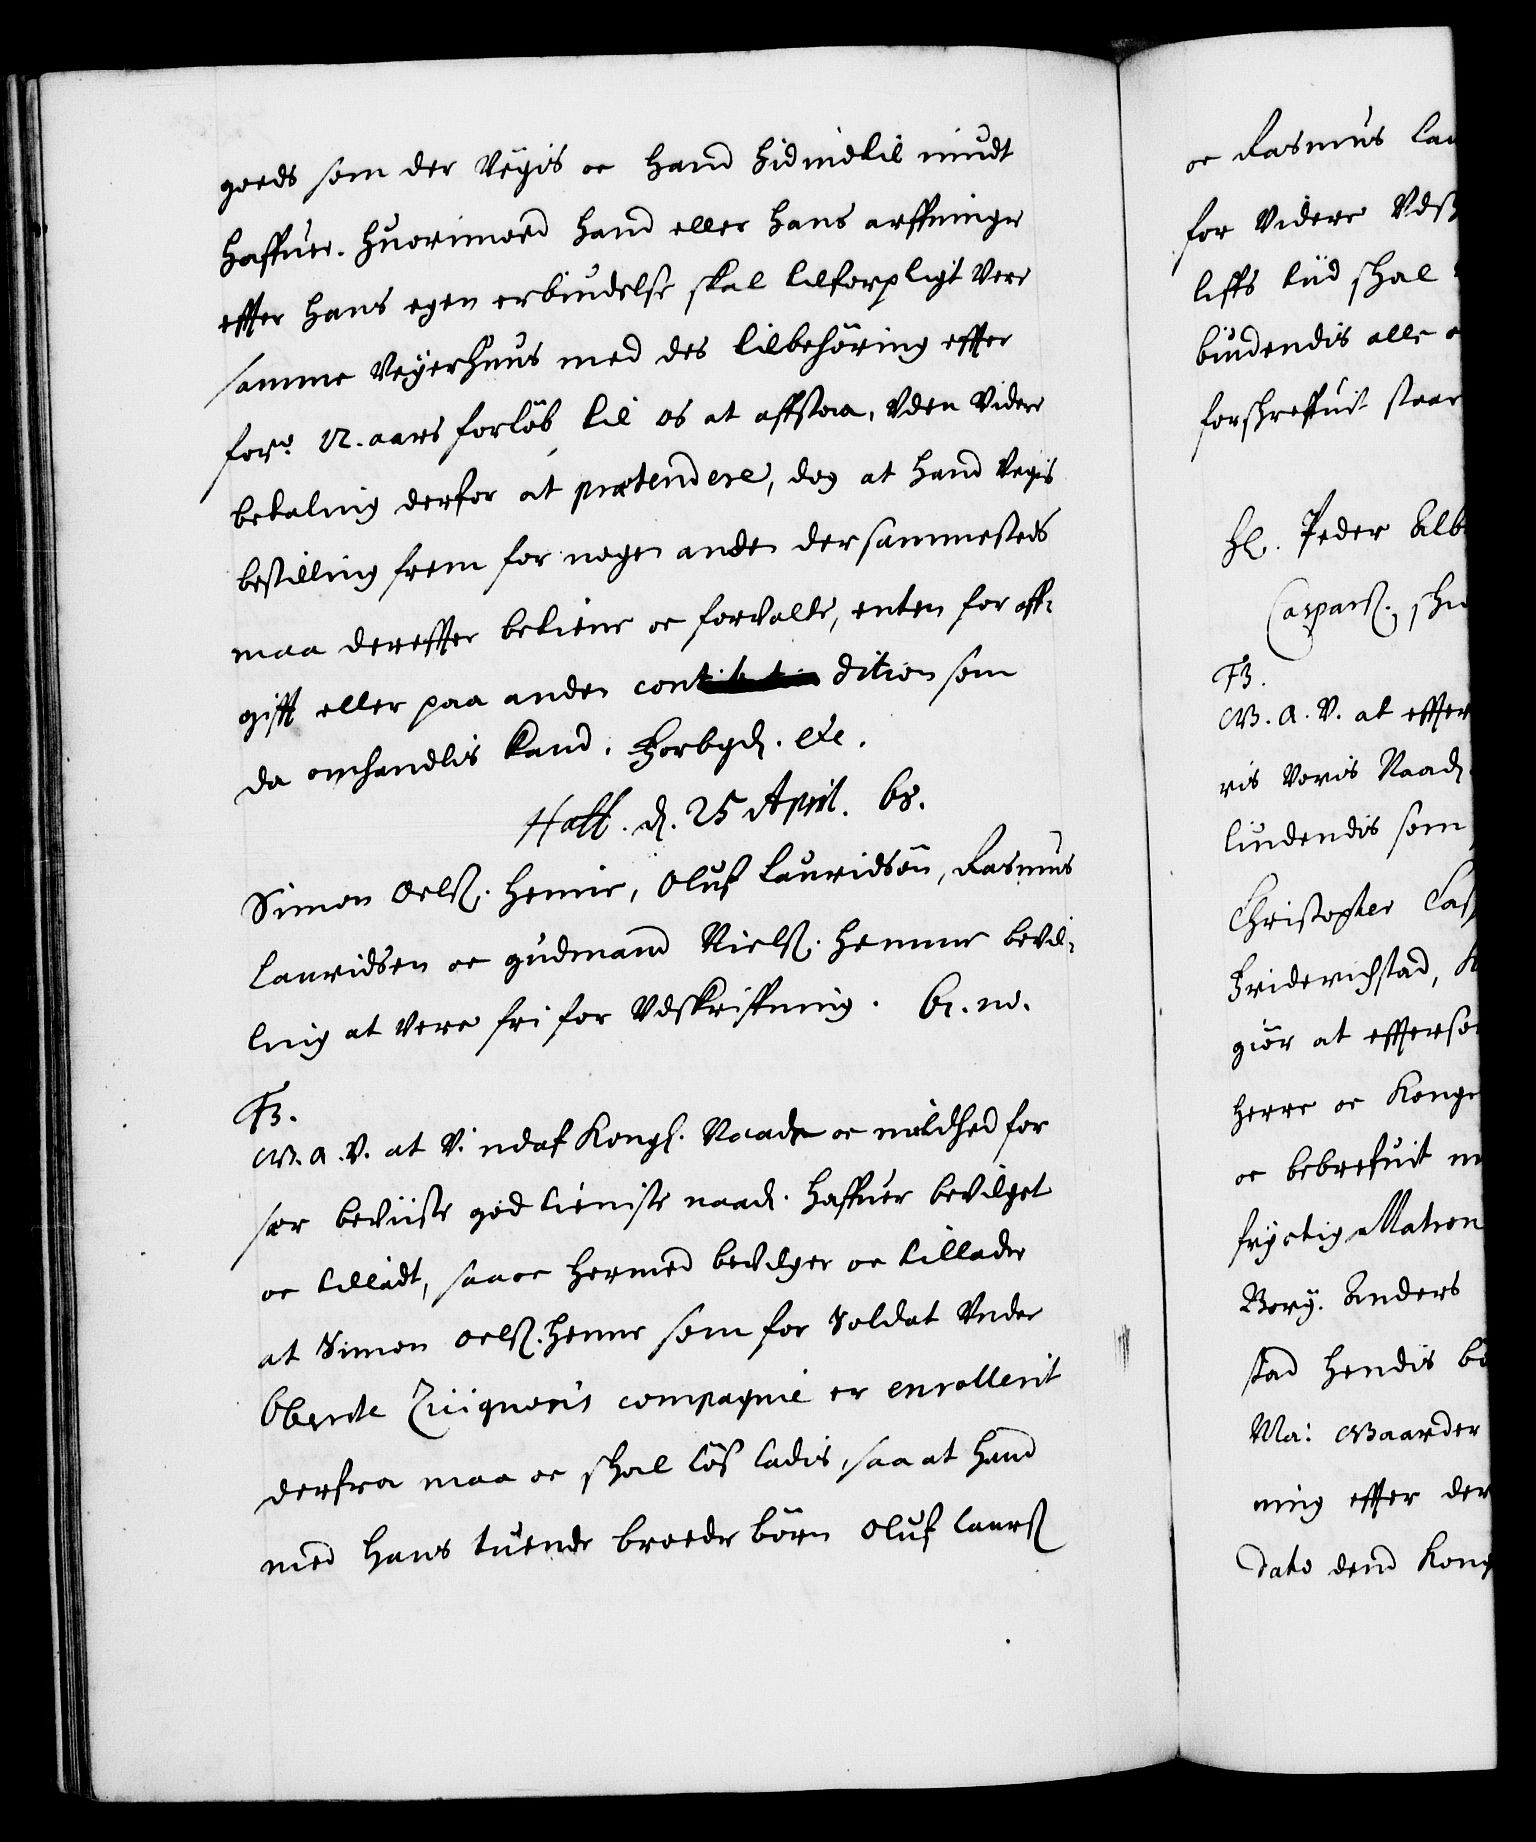 goeds som der Veÿis oc hand hid indtil niudt
haffuer. huorimoed hand eller hans arffvinger
effter hans egen erbiudelse skal tilforpligt vere
samme Veÿerhuus med des tilbehöring effter
for.ne 12. aars forlöb til os at affstaa, uden videre
betaling derfor at prætendere, dog at hand Veÿis
bestilling frem for nogen anden dersammesteds
maa dereffter betiene oc forvalte, enten for aff-
gifft eller paa anden con dition som
da omhandlis kand. Forbyd. etc.
Haff. d. 25 April. 68.
Simon Oelss. Hemme, Oluf Lauridsön, Rasmus
Lauridsen oc Gudmand Nielss. Hemme bevil-
ling at vere fri for Vdskriffning. Br. no.
F3.
G.A.V. at V. udaf Kongl. Naade oc mildhed for
sær beviiste god tieniste naad. haffuer bevilget
oc tilladt, saa oc hermed bevilger oc tillader
at Simon Oelss. Hemme som for Soldat Under
Oberste compagnie er enrollerit
derfra maa oc skal löß ladis, saa at hand
med hans tuende broder börn Oluf Laurss
oc Rasmus Lau
for Videre Vdsk
liffs tiid skal
biudendis alle
forskreffuit staar
Hr. Peder Alb
Caspars. sk
F3.
G.A.V. at effter
ris Voris Naad.
liudendis som
Christopher Cas
Friderichstad, K
giör at effterso
Herre oc Konge
oc bebrefuit
frÿctig Matron
Borg. Anders
stad hendis
Ma: Waarder
ning effter der
Dato dend Kong